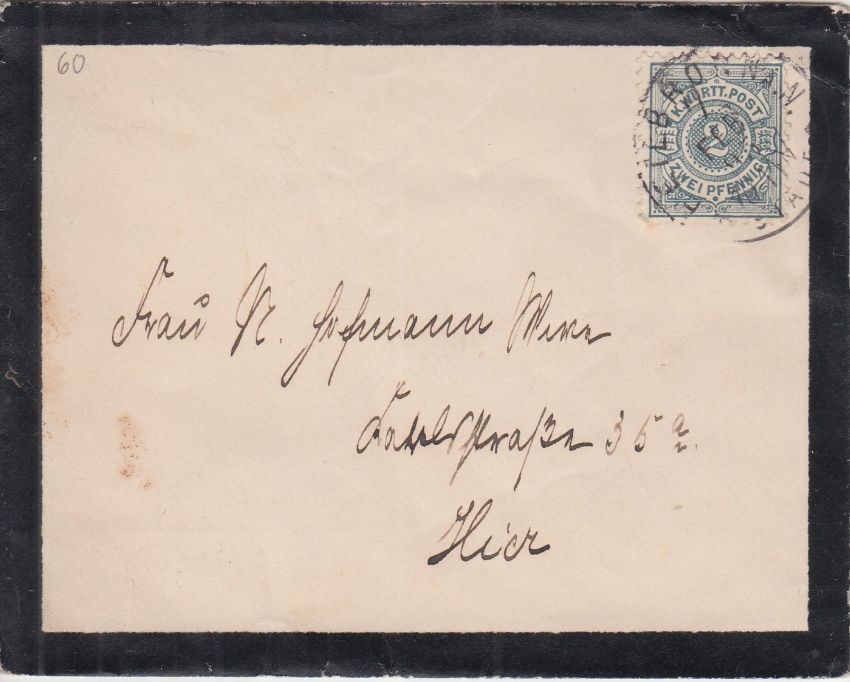 60
HEILBRONN
K. WÜRTT. POST
2
ZWEI PFENNIG
Frau N. Hofmann Wwe
Karlsstraße 35 a.
Hier